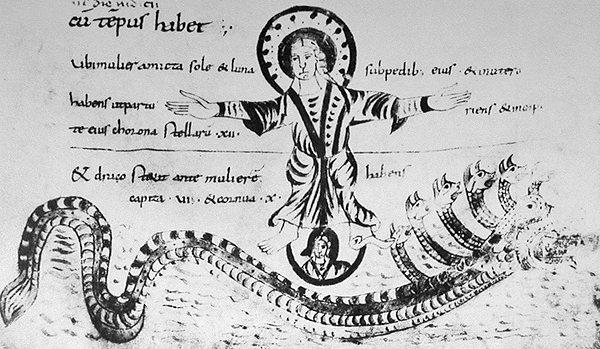 cū tēpus habet
Ubi mulier amicta sole & luna sub pedib; eius · & in utero
habens ut partu riens & in capi
te eius chorona stellarū · xii ·
& draco stetit ante mulierē habens
capita · vii · & cornua · x ·